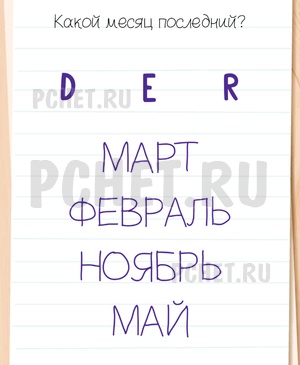 Какой месяц последний?
D E R
PCHET.RU
МАРТ
PCHET.RU
ФЕВРАЛЬ
НОЯБРЬ
PCHET.RU
МАЙ
PCHET.RU